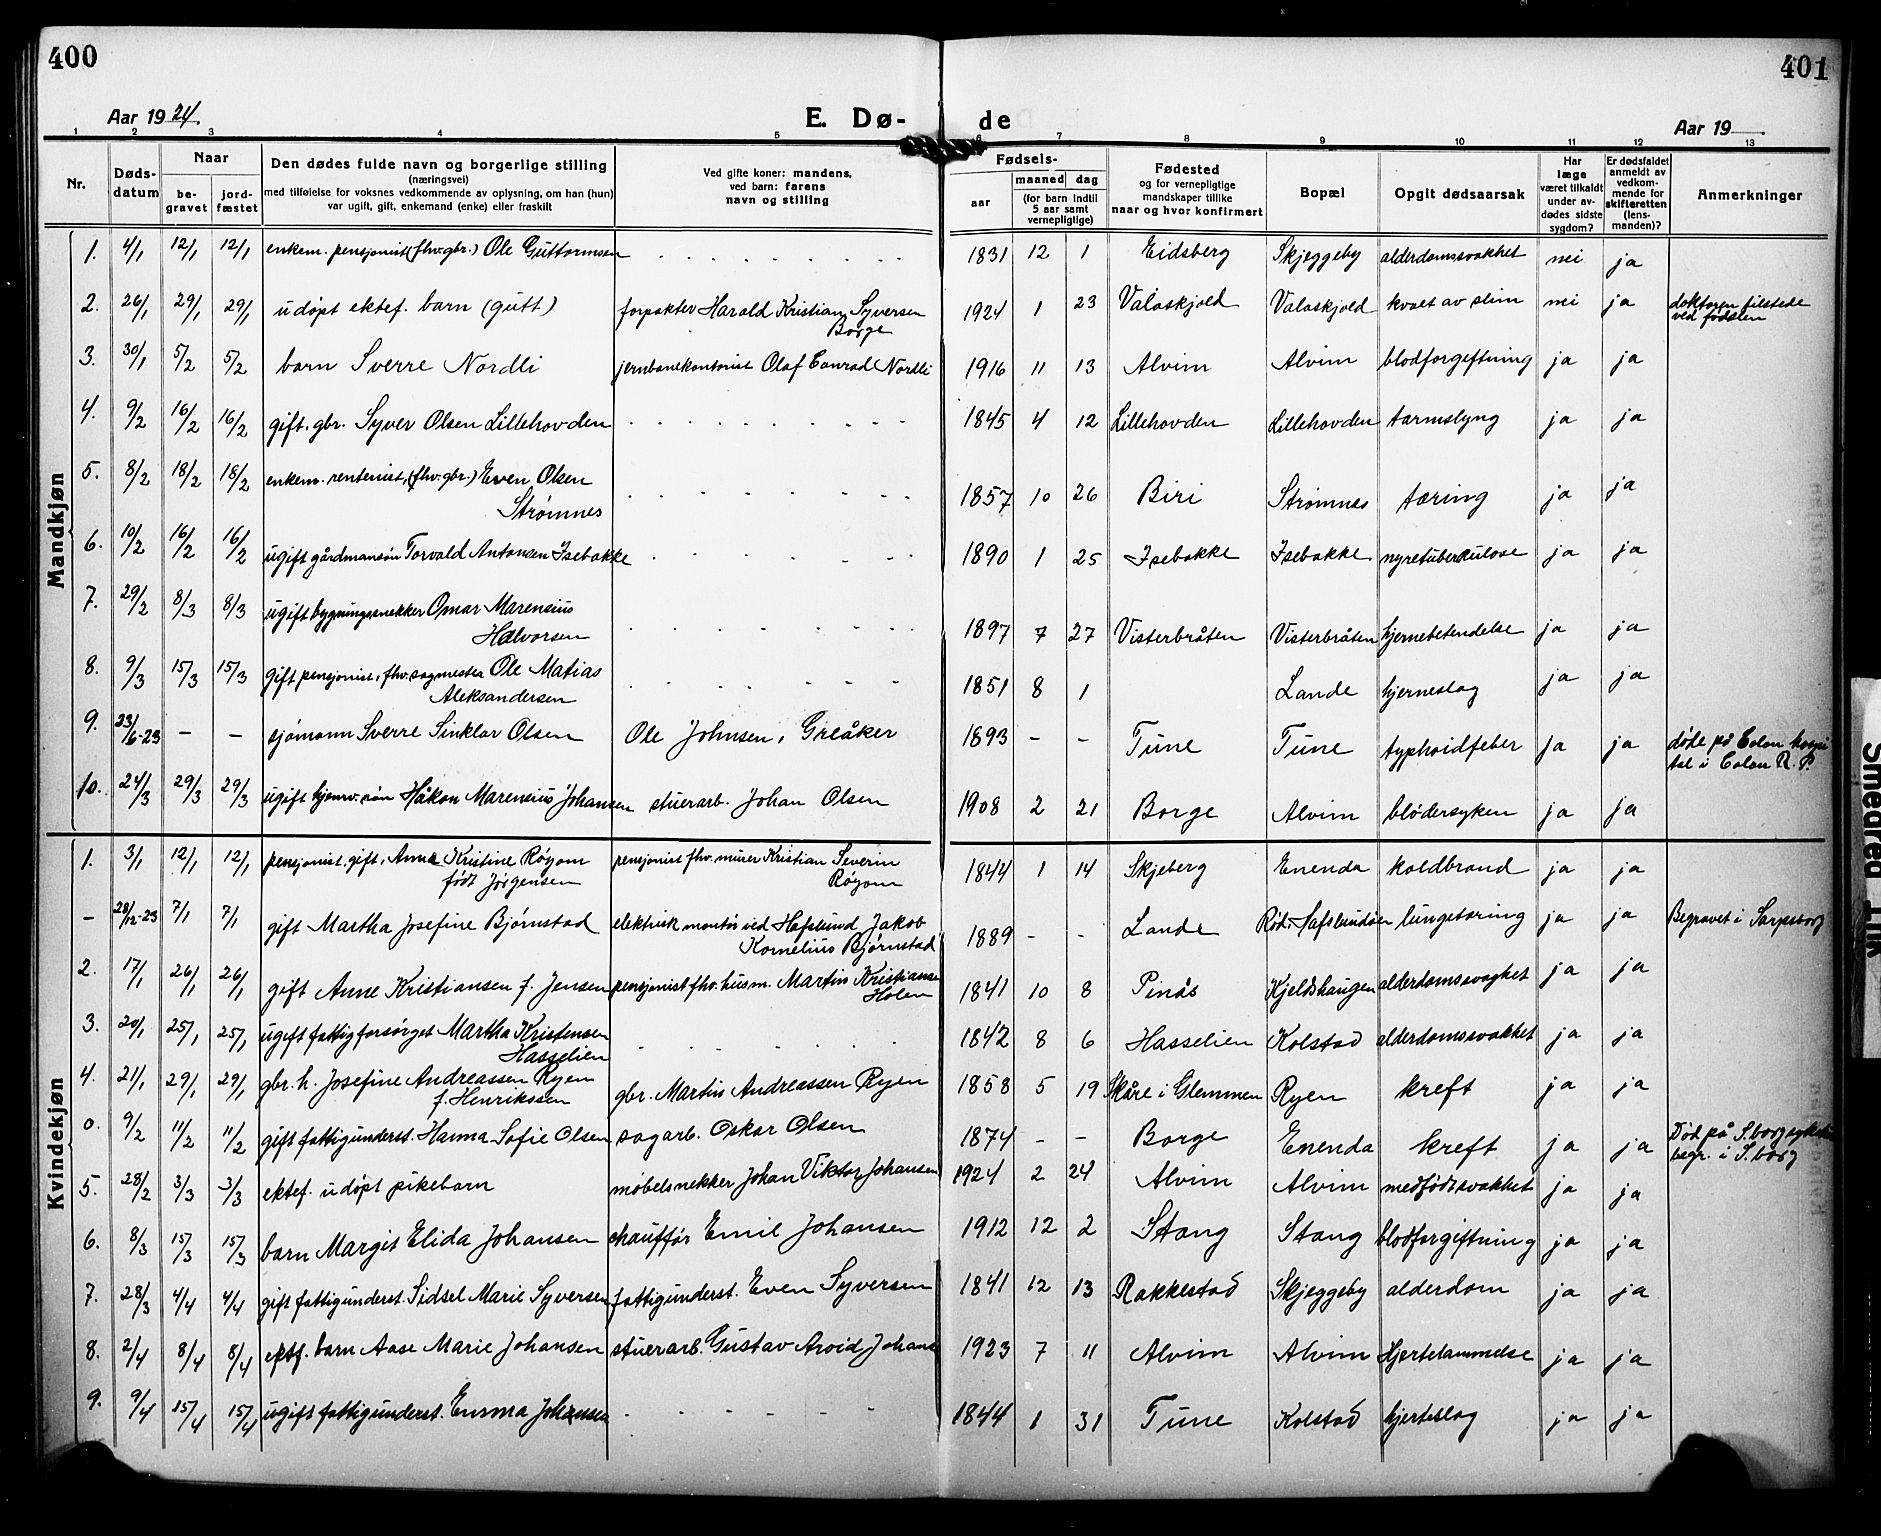 400
401
Aar 1924.
E. Dø-
de
Aar 19
1 2 3 4 5 6 7 8 9 10 11 12 13
Nr.
Døds-
datum
Naar
be-
gravet
jord-
fæstet
Den dødes fulde navn og borgerlige stilling
(næringsvei)
med tilføielse for voksnes vedkommende av oplysning, om han (hun)
var ugift, gift, enkemand (enke) eller fraskilt
Ved gifte koner: mandens,
ved barn: farens
navn og stilling
Fødsels-
aar
maaned
dag
(for barn indtil
5 aar samt
vernepligtige)
Fødested
og for vernepligtige
mandskaper tillike
naar og hvor konfirmert
Bopæl
Opgit dødsaarsak
Har
læge
været tilkaldt
under av-
dødes sidste
sygdom?
Er dødsfaldet
anmeldt av
vedkom-
mende for
skifteretten
(lens-
manden)?
Anmerkninger
Mandkjøn
1. 4/1 12/1 12/1 enkem. pensjonist (fhv. gbr.) Ole Guttormsen 1831 12 1 Eidsberg Skjeggeby alderdomssvakhet nei ja
2. 26/1 29/1 29/1 udøpt ektef. barn (gutt) forpakter Harald Kristian Syversen
Borge 1924 1 23 Valaskjold Valaskjold kvalt av slim nei ja doktoren tilstede
ved fødslen
3. 30/1 5/2 5/2 barn Sverre Nordli jernbanekontorist Olaf Conrad Nordli 1916 11 13 Alvim Alvim blodforgiftning ja ja
4. 9/2 16/2 16/2 gift. gbr. Syver Olsen Lillehovden 1845 4 12 Lillehovden Lillehovden tarmslyng ja ja
5. 8/2 18/2 18/2 enkem. rentenist, (fhv. gbr.) Even Olsen
Strømnes 1857 10 26 Biri Strømnes tæring ja ja
6. 10/2 16/2 16/2 ugift gårdmansøn Torvald Antonsen Isebakke 1890 1 25 Isebakke Isebakke nyretuberkulose ja ja
7. 29/2 8/3 8/3 ugift bygningssnekker Omar Marensius
Halvorsen 1897 7 27 Visterbråten Visterbråten hjernebetendelse ja ja
8. 9/3 15/3 15/3 gift pensjonist, fhv. sagmester Ole Matias
Aleksandersen 1851 8 1 Lande hjerneslag ja ja
9. 23/6-23 - - sjømann Sverre Sinklar Olsen Ole Johnsen, Greåker 1893 - - Tune Tune typhoidfeber ja ja døde på Colon hospi
tal i Colon R. P.
10. 24/3 29/3 29/3 ugift hjemv. søn Håkon Marensius Johansen stuerarb. Johan Olsen 1908 2 21 Borge Alvim blødersyken ja ja
Kvindekjøn
1. 3/1 12/1 12/1 pensjonist, gift, Anna Kristine Røyom
født Jørgensen pensjonist fhv. murer Kristian Severin
Røyom 1844 1 14 Skjeberg Enenda koldbrand ja ja
- 28/12-23 7/1 7/1 gift Martha Josefine Bjørnstad elektrisk montør ved Hafslund Jakob
Kornelius Bjørnstad 1889 - - Lande Rød, Hafslundsøen lungetæring ja ja Begravet i Sarpsborg
2. 17/1 26/1 26/1 gift Anne Kristiansen f. Jensen pensjonist fhv. husm. Martin Kristiansen
Holen 1841 10 8 Pinås Kjeldshaugen alderdomssvaghet ja ja
3. 20/1 25/1 25/1 ugift fattigforsørget Martha Kristensen
Hasselien 1842 8 6 Hasselien Kolstad alderdomssvakhet ja ja
4. 21/1 29/1 29/1 gbr. h. Josefine Andreassen Ryen
f. Henrikssen gbr. Martin Andreassen Ryen 1858 5 19 Skåre i Glemmen Ryen kreft ja ja
0. 9/2 11/2 11/2 gift fattigunderst. Hanna Sofie Olsen sagarb. Oskar Olsen 1874 - - Borge Enenda kreft ja ja Død på S.borg
begr. i S.borg
5. 28/2 3/3 3/3 ektef. udøpt pikebarn møbelsnekker Johan Viktor Johansen 1924 2 24 Alvim Alvim medfødt svakhet ja ja
6. 8/3 15/3 15/3 barn Margit Elida Johansen chauffør Emil Johansen 1912 12 2 Stang Stang blodforgiftning ja ja
7. 28/3 4/4 4/4 gift fattigunderst. Sidsel Marie Syversen fattigunderst. Even Syversen 1841 12 13 Rakkestad Skjeggeby alderdom ja ja
8. 2/4 8/4 8/4 ektf. barn Aase Marie Johansen stuerarb. Gustav Arvid Johans 1923 7 11 Alvim Alvim Hjertelammelse ja ja
9. 9/4 15/4 15/4 ugift fattigunderst. Emma Johansen 1844 1 31 Tune Kolstad hjerteslag ja ja